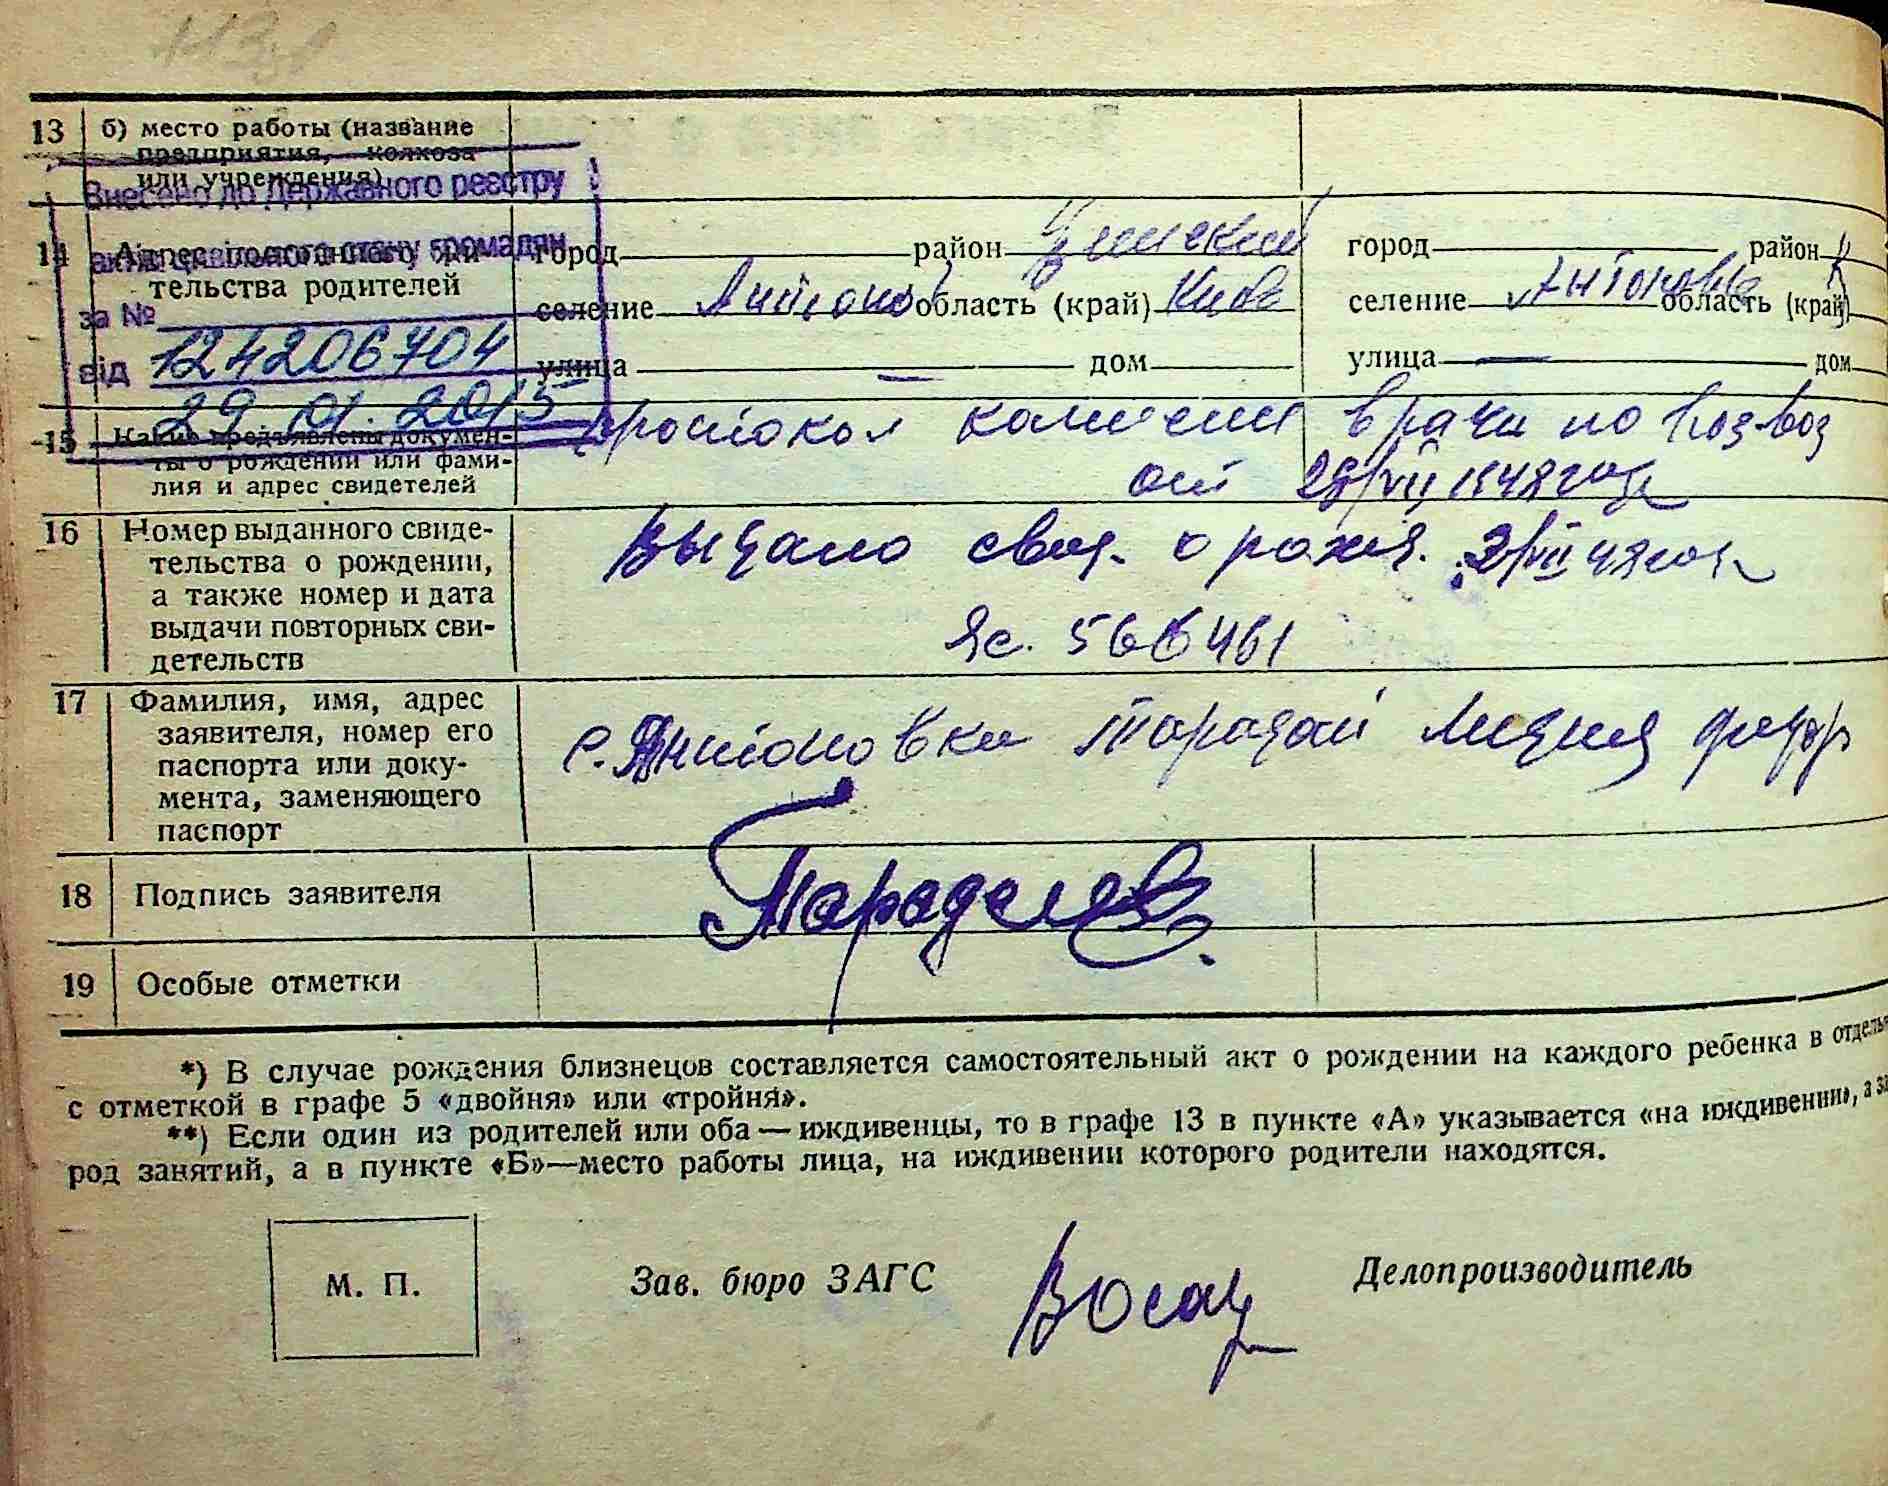 13 б) место работы (название
предприятия, колхоза
или учреждения)
Внесено до Державного реєстру
актів цивільного стану громадян
за №
124206704
від
29.01.2015
14 Адрес постоянного жи-
тельства родителей
город район
селение Антонов область (край) Киев
улица дом
город район К
селение Антоновка область (край)
улица — дом
15 Какие предъявлены докумен-
ты о рождении или фами-
лия и адрес свидетелей
протокол комисии врачи по
от 28/VII 1948 года
16 Номер выданного свиде-
тельства о рождении,
а также номер и дата
выдачи повторных сви-
детельств
Выдано свид. о рожд. 48 года
Яс. 566461
17 Фамилия, имя, адрес
заявителя, номер его
паспорта или доку-
мента, заменяющего
паспорт
с. Антоновка Тарадай Лидия Федор
18 Подпись заявителя
19 Особые отметки
*) В случае рождения близнецов составляется самостоятельный акт о рождении на каждого ребенка в отдель
с отметкой в графе 5 «двойня» или «тройня».
**) Если один из родителей или оба — иждивенцы, то в графе 13 в пункте «А» указывается «на иждивении», а за
род занятий, а в пункте «Б»—место работы лица, на иждивении которого родители находятся.
М. П.
Зав. бюро ЗАГС
Делопроизводитель